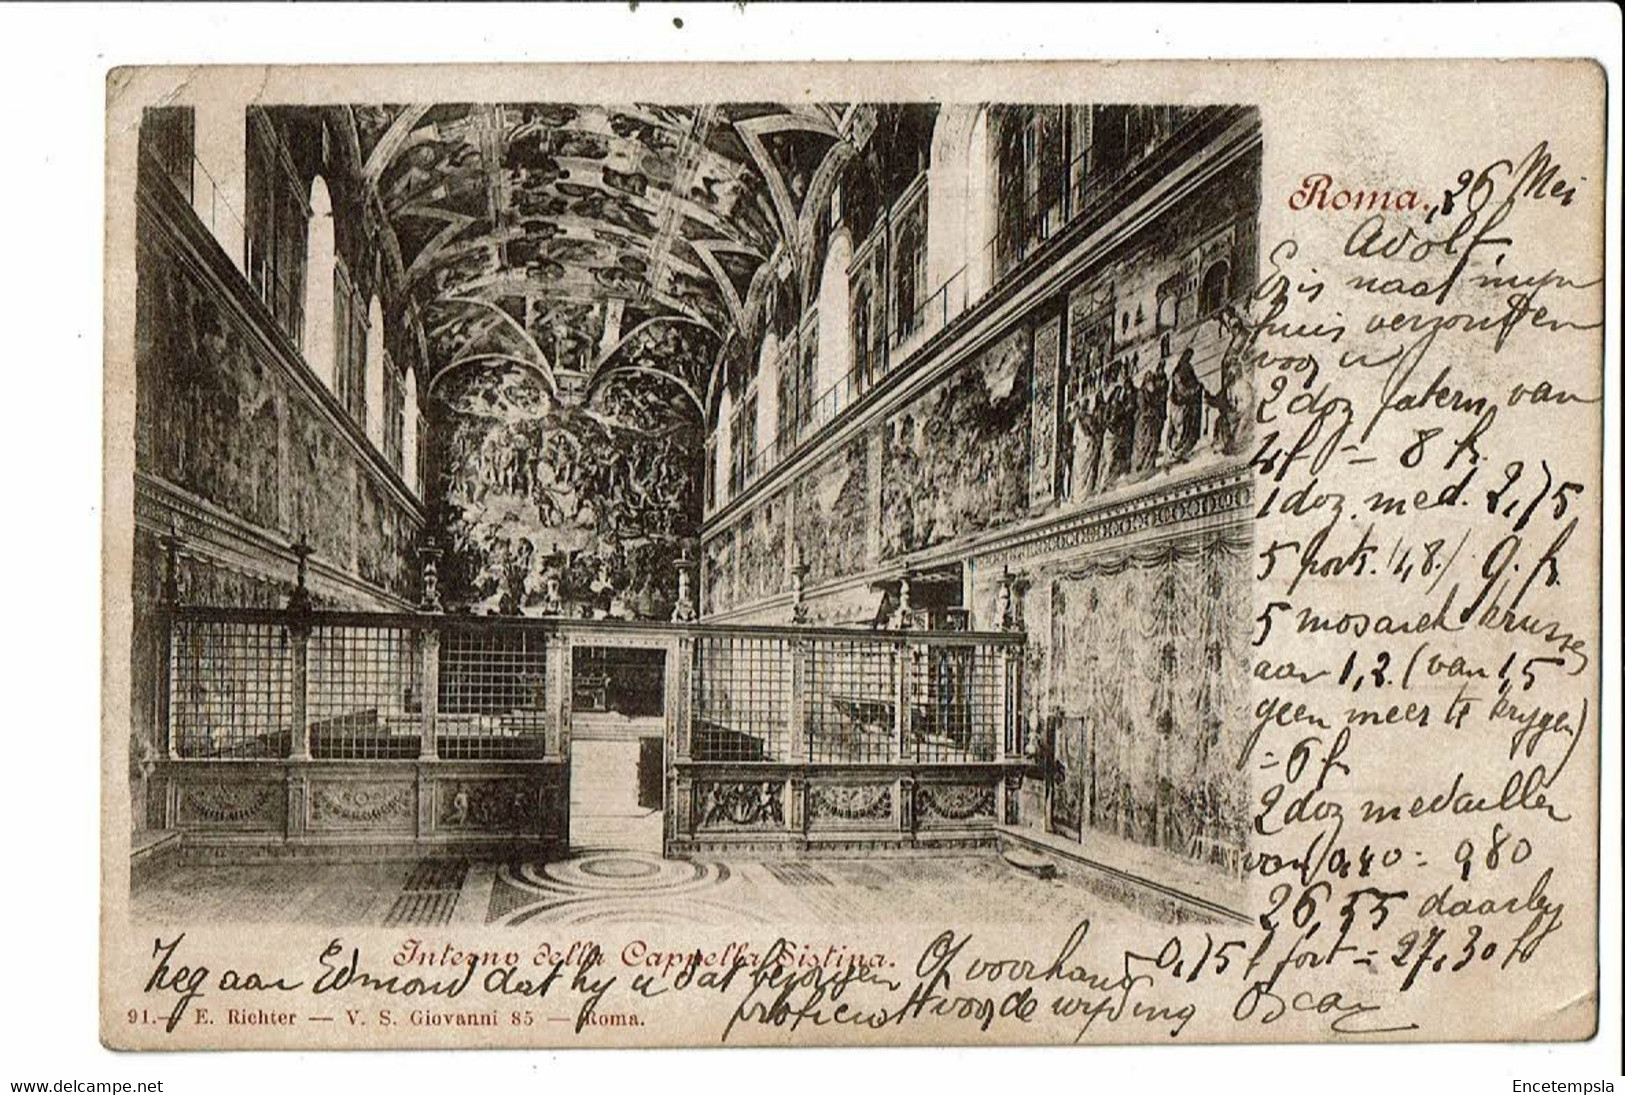 Roma. 26 Mei
Adolf,
Er is naar mijn
huis verzonden
voor u
2 doz patern van
4 f = 8 fr.
1 doz. med. 2,75
5 port. (1,8.) 9. fr.
5 mosaiek kruisse
aan 1,2. (van 1,5
geen meer te krygen)
= 6 f
2 doz medaillen
van 0,40 = 0,80
26,55 daarby
0,75 f port = 27,30 fr
Interno della Cappella Sistina.
Zeg aan Edmond dat hy u dat bezorgen Op voorhand
proficiat voor de wyding Oscar
91. — E. Richter — V. S. Giovanni 85 — Roma.
www.delcampe.net
Encetempsla